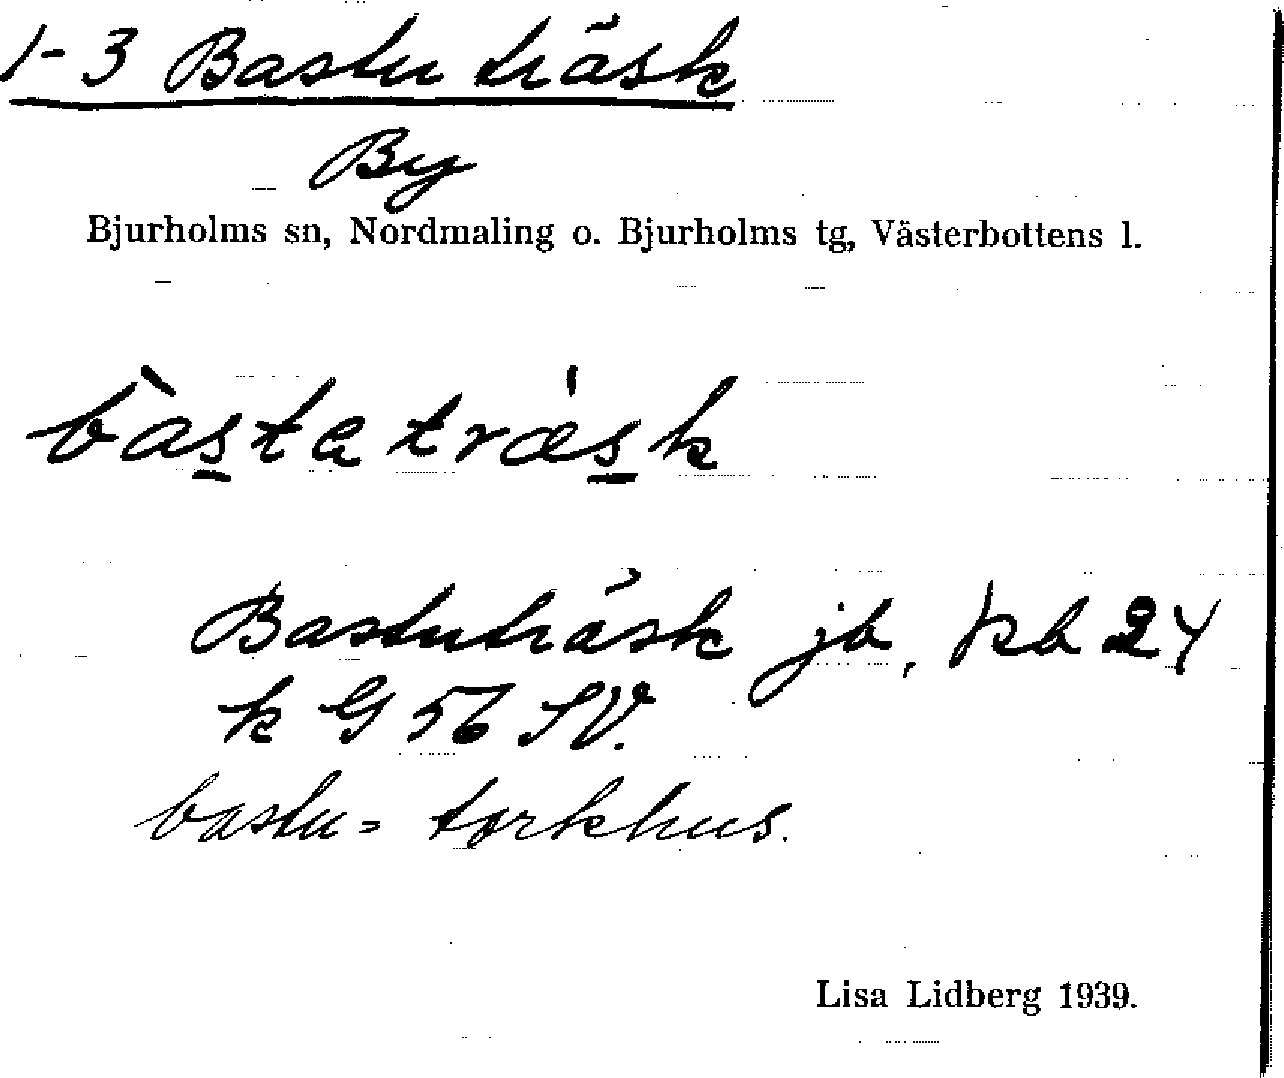 1-3 Bastuträsk
By
Bjurholms sn, Nordmaling o. Bjurholms tg, Västerbottens l.
bàstatrǽsk
Bastuträsk jb, kb 24
k G 56 SV.
bastu = torkhus.
Lisa Lidberg 1939.